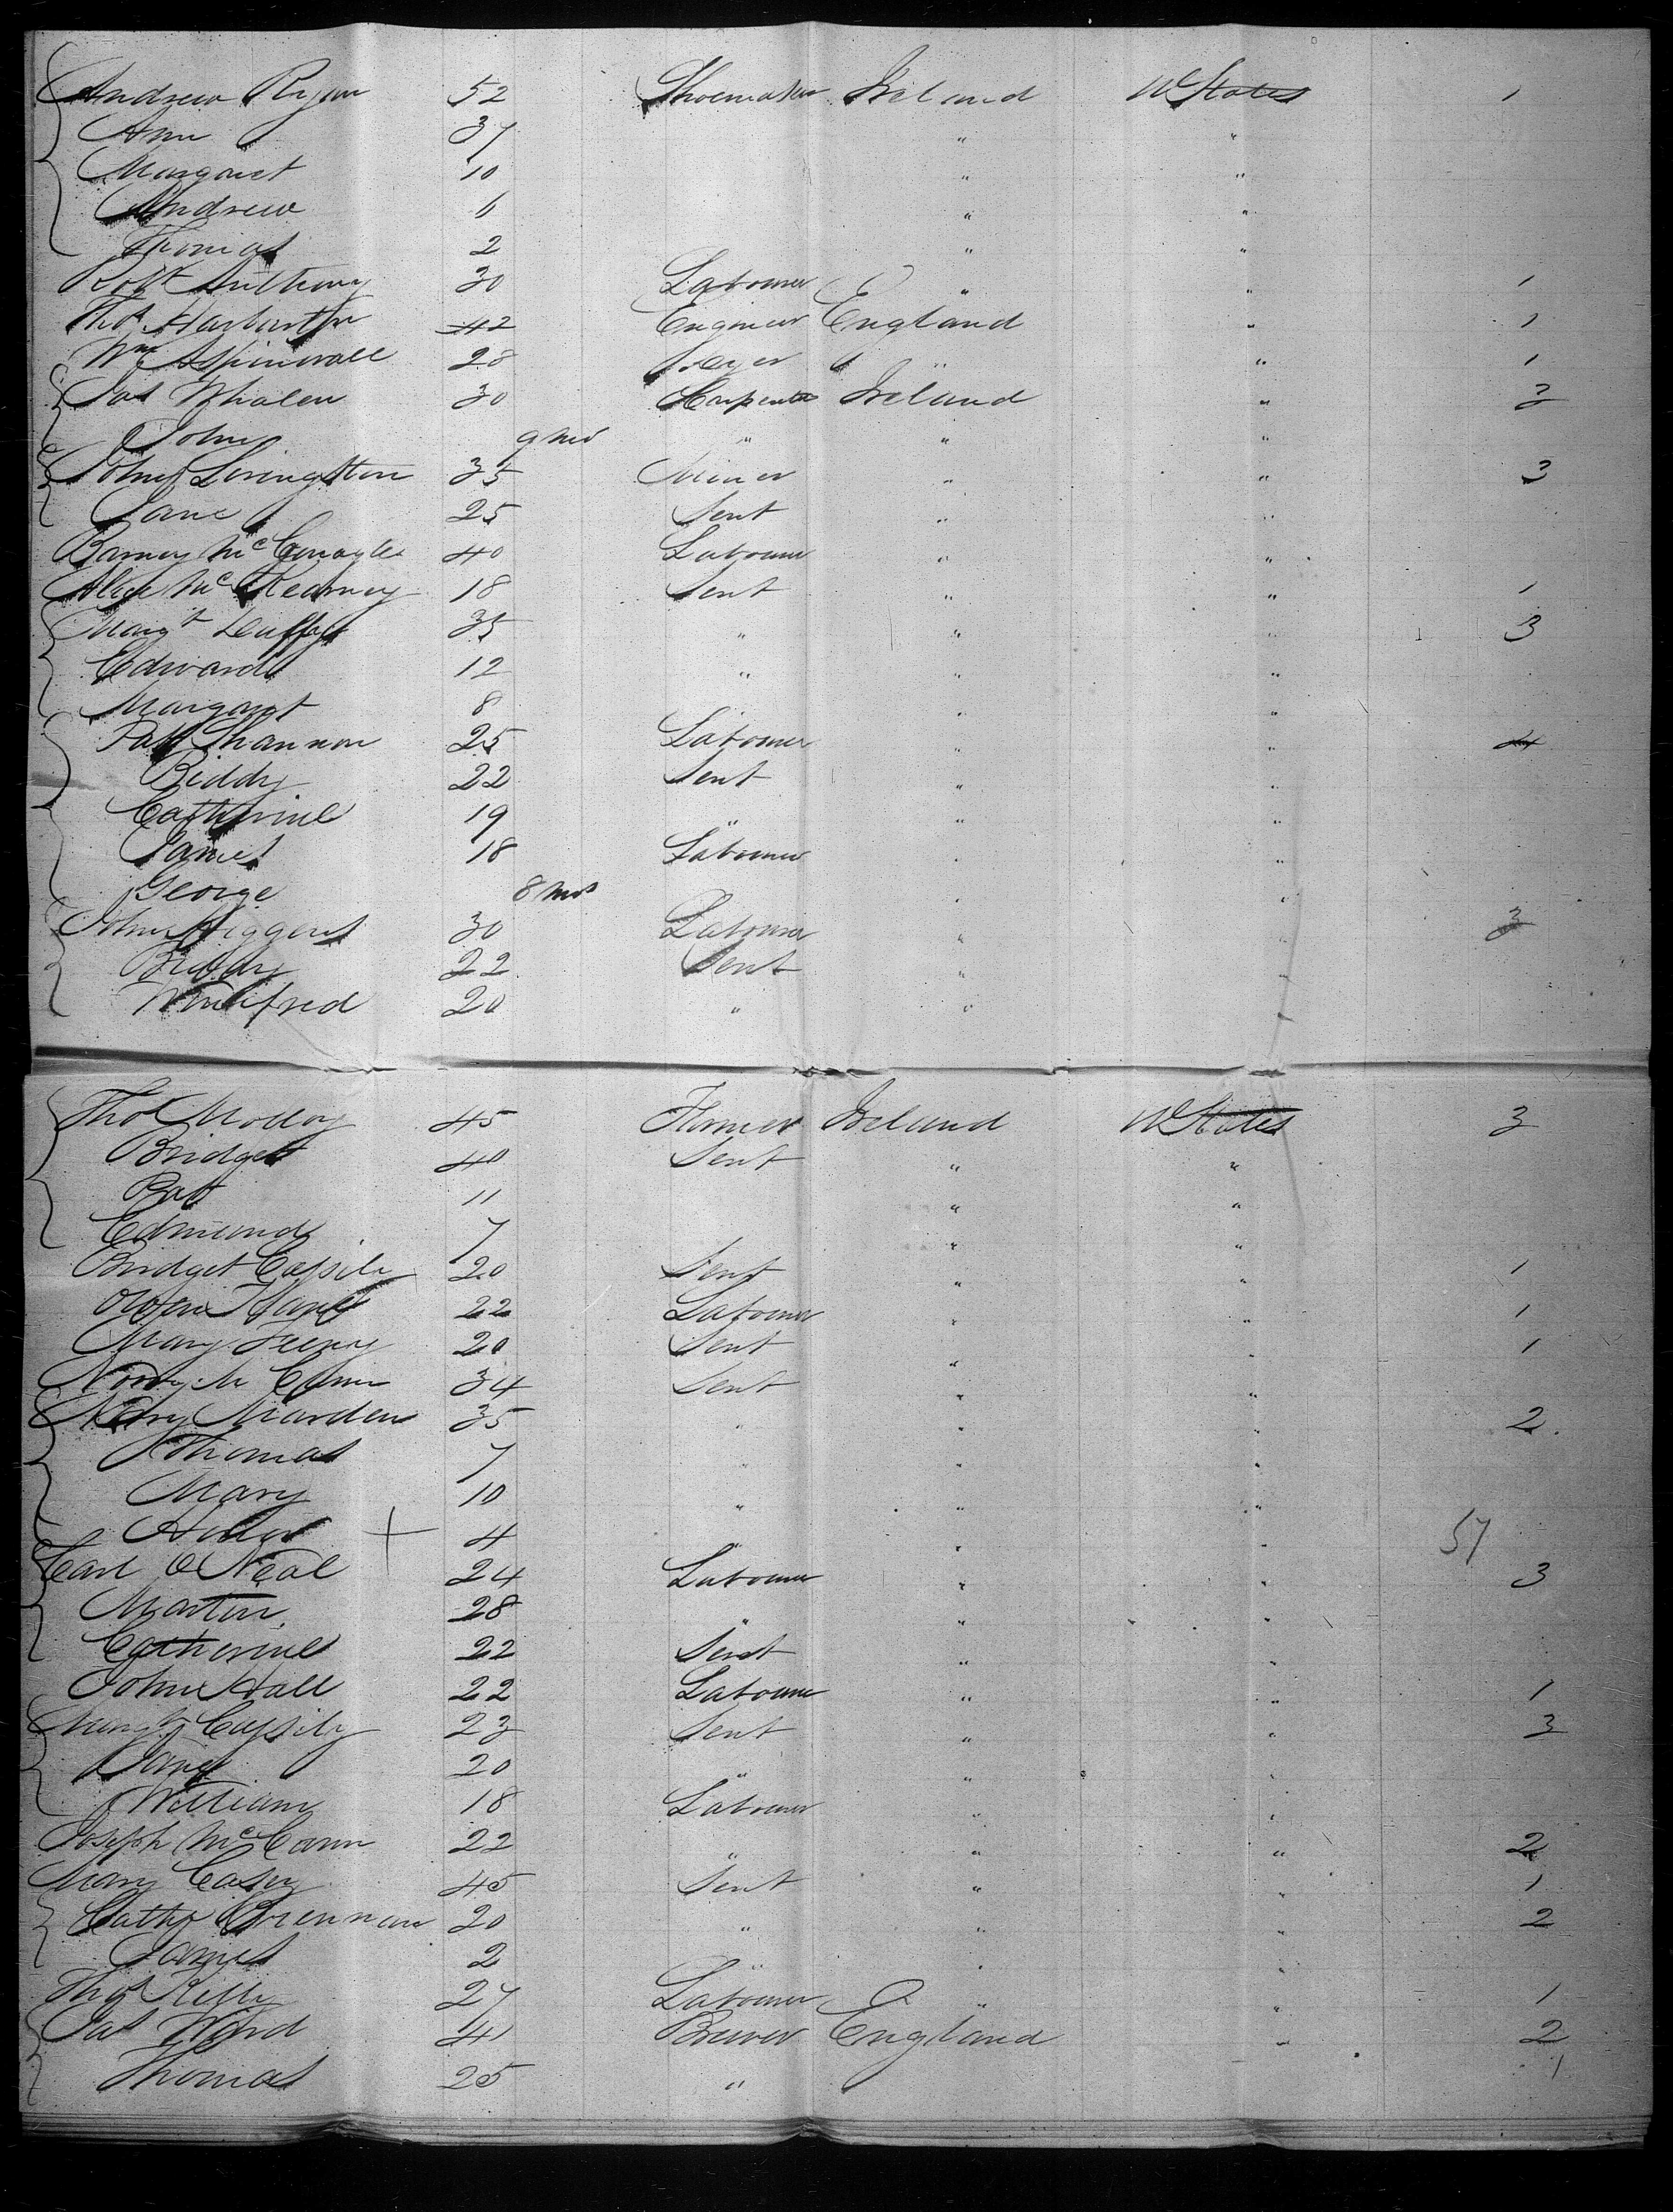 Andrew Ryan 52 Shoemaker Ireland U States 1
Ann 37 " "
Margaret 10 " "
Andrew 6 " "
Thomas 2 " "
Robt Anthony 30 Labourer " " 1
Thos 42 Engineer England " 1
Wm Aspinwall 28 " " 1
Jas Whalen 30 Carpenter Ireland " 3
John 9 mos " " "
John Livingston 35 Miner " " 3
Jane 25 Sert " "
Barney 40 Labourer " "
Alice McKearney 18 Sert " " 1
Margt Duffy 35 " " " 3
Edward 12 " " "
Margaret 8 " "
Patt Shannon 25 Labourer " " 4
Biddy 22 Sert " "
Catherine 19 " " "
James 18 Labourer " "
George 8 mos " "
John Higgens 30 Labourer " " 3
Biddy 22 Sert " "
Winifred 20 " " "
Thos Molloy 45 Farmer Ireland U States 3
Bridget 40 Sert " "
Pat 11 " "
Edmund 7 " "
Bridget Cassily 20 Sert " " 1
Owen Kane 22 Labourer " " 1
Mary Feeny 20 Sert " " 1
34 Sert " "
Mary Marden 35 " " " 2
Thomas 7 " " "
Mary 10 " " "
+ 4 " " " 57
Carl O Neal 24 Labourer " " 3
Martin 28 " " "
Catherine 22 Sert " "
John Hall 22 Labourer " " 1
Margt Cassily 23 Sert " " 3
Jane 20 " " "
William 18 Labourer " "
Joseph McCann 22 " " " 2
Mary Casey 45 Sert " " 1
Cathe Brennan 20 " " " 2
James 2 " " "
Thos Kelly 27 Labourer " " 1
Jas Ward 41 Brewer England " 2
Thomas 25 " 1